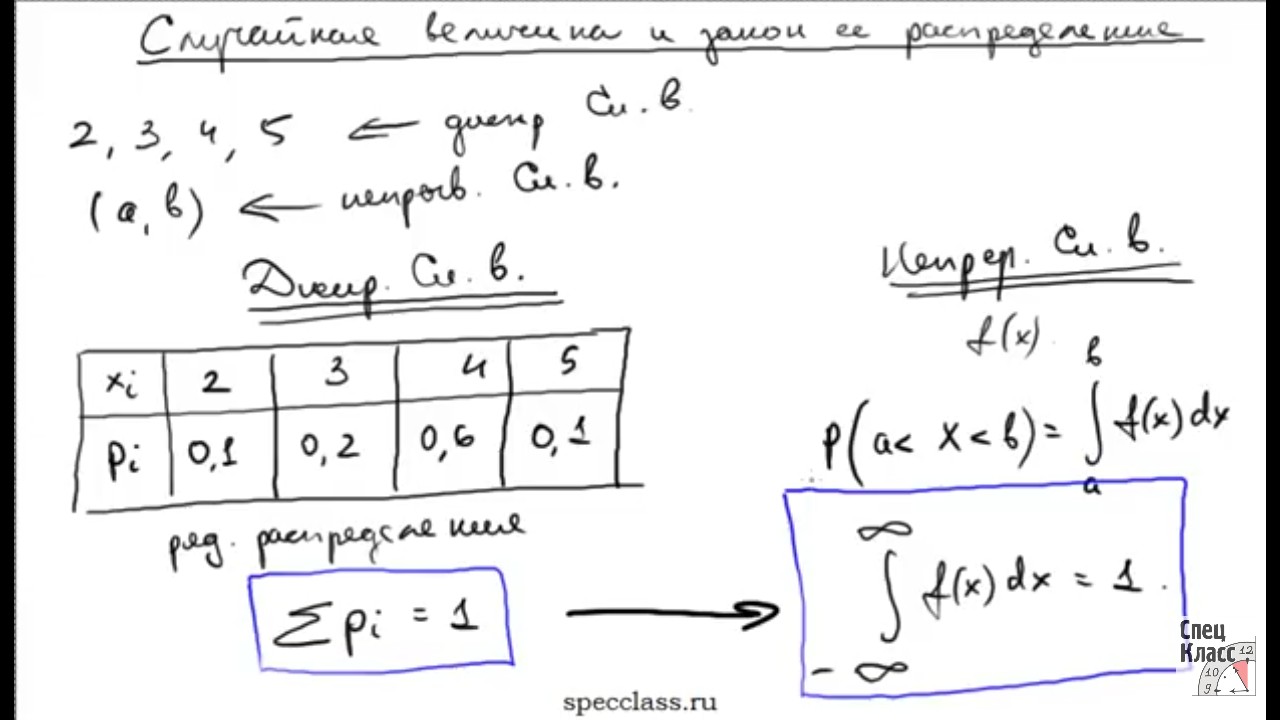 Случайная величина и закон ее распределение
2, 3, 4, 5 ← дискр Сл. в.
(a, b) ← непрыв. Сл. в.
Дискр. Сл. в.
xi 2 3 4 5
pi 0,1 0,2 0,6 0,1
ряд. распределение
∑ pi = 1
Непрер. Сл. в.
f(x).
P(a < X < b) = ∫_a^b f(x) dx
∫_{-∞}^{∞} f(x) dx = 1.
Спец
Класс
12
10
9
specclass.ru